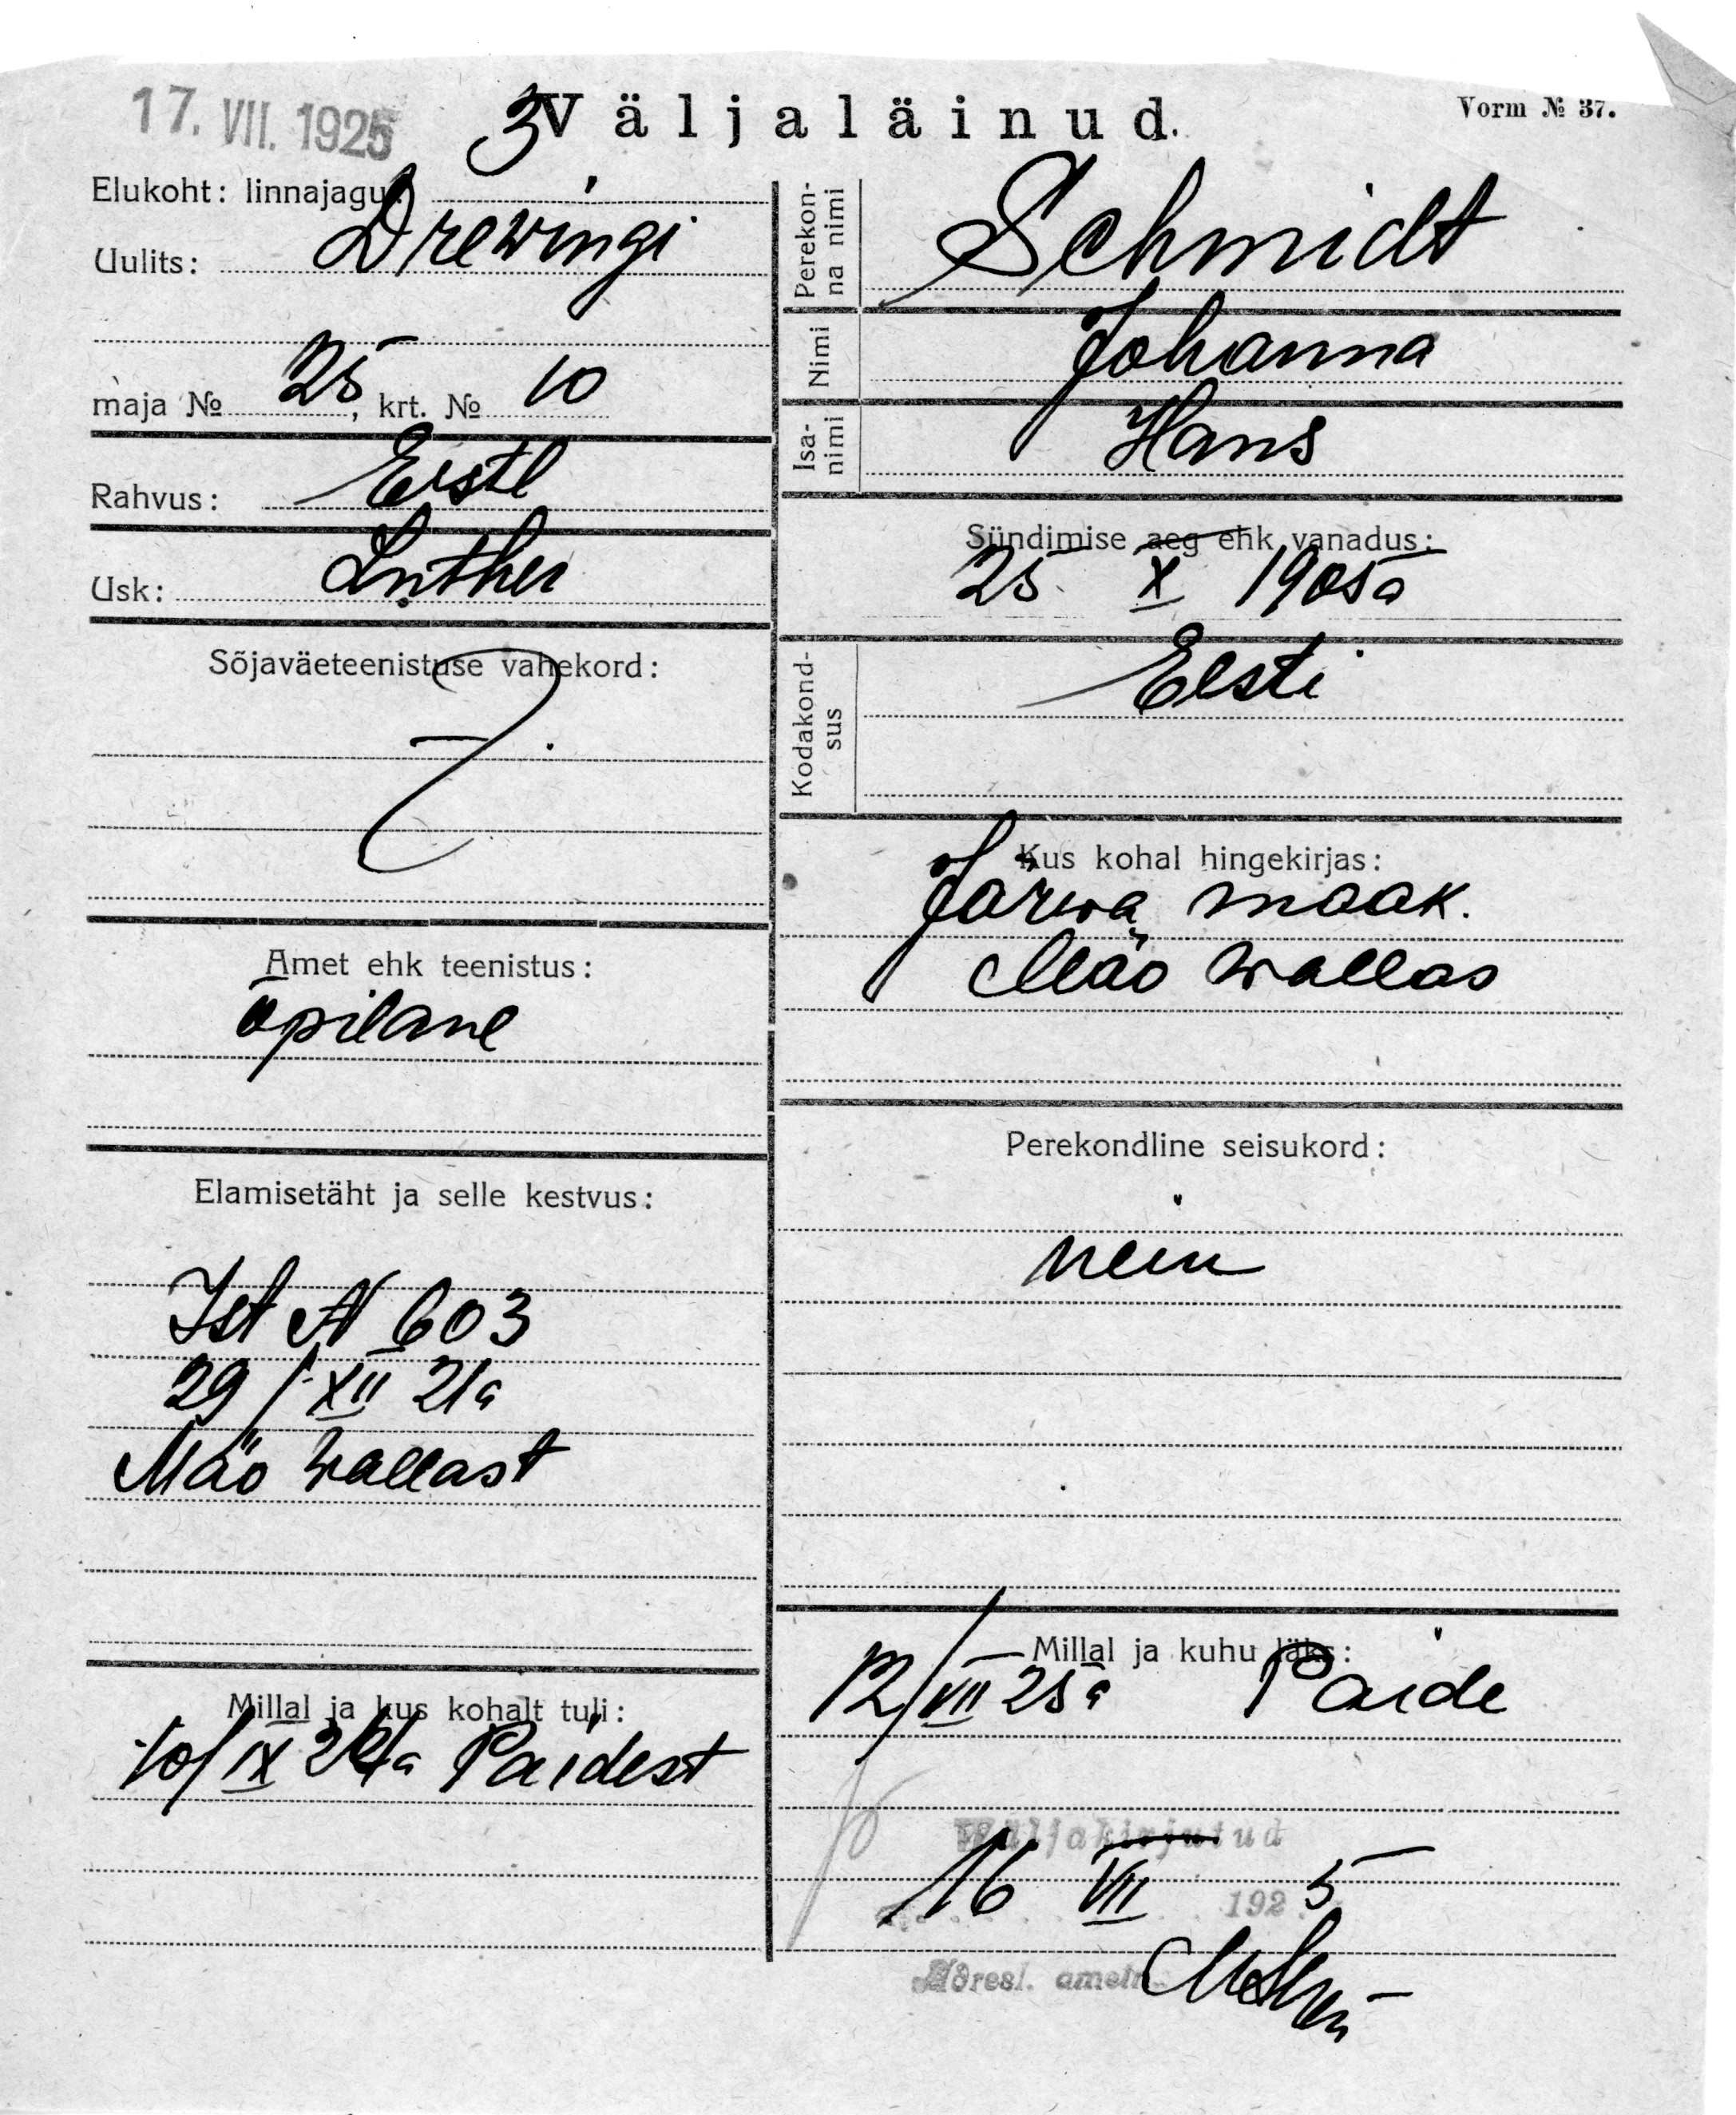 17. VII. 1925
3 Väljaläinud.
Vorm № 37.
Elukoht: linnajagu:
Uulits: Drewingi
maja № 25, krt. № 10
Rahvus: Eestl
Usk: Luther
Sõjaväeteenistuse vahekord:
Amet ehk teenistus:
õpilane
Elamisetäht ja selle kestvus:
Ist № 603
29/XII 21a
Mäo wallast
Millal ja kus kohalt tuli:
10/IX 24a Paidest
Perekonna nimi Schmidt
Nimi Johanna
Isanimi Hans
Sündimise aeg ehk vanadus:
25 X 1905a
Kodakondsus Eesti
Kus kohal hingekirjas:
Järwa maak.
Mäo wallas
Perekondline seisukord:
nein
Millal ja kuhu läks:
12/VII 25a Paide
Väljakirjutud
16 VII 1925
Adresl. ametn.